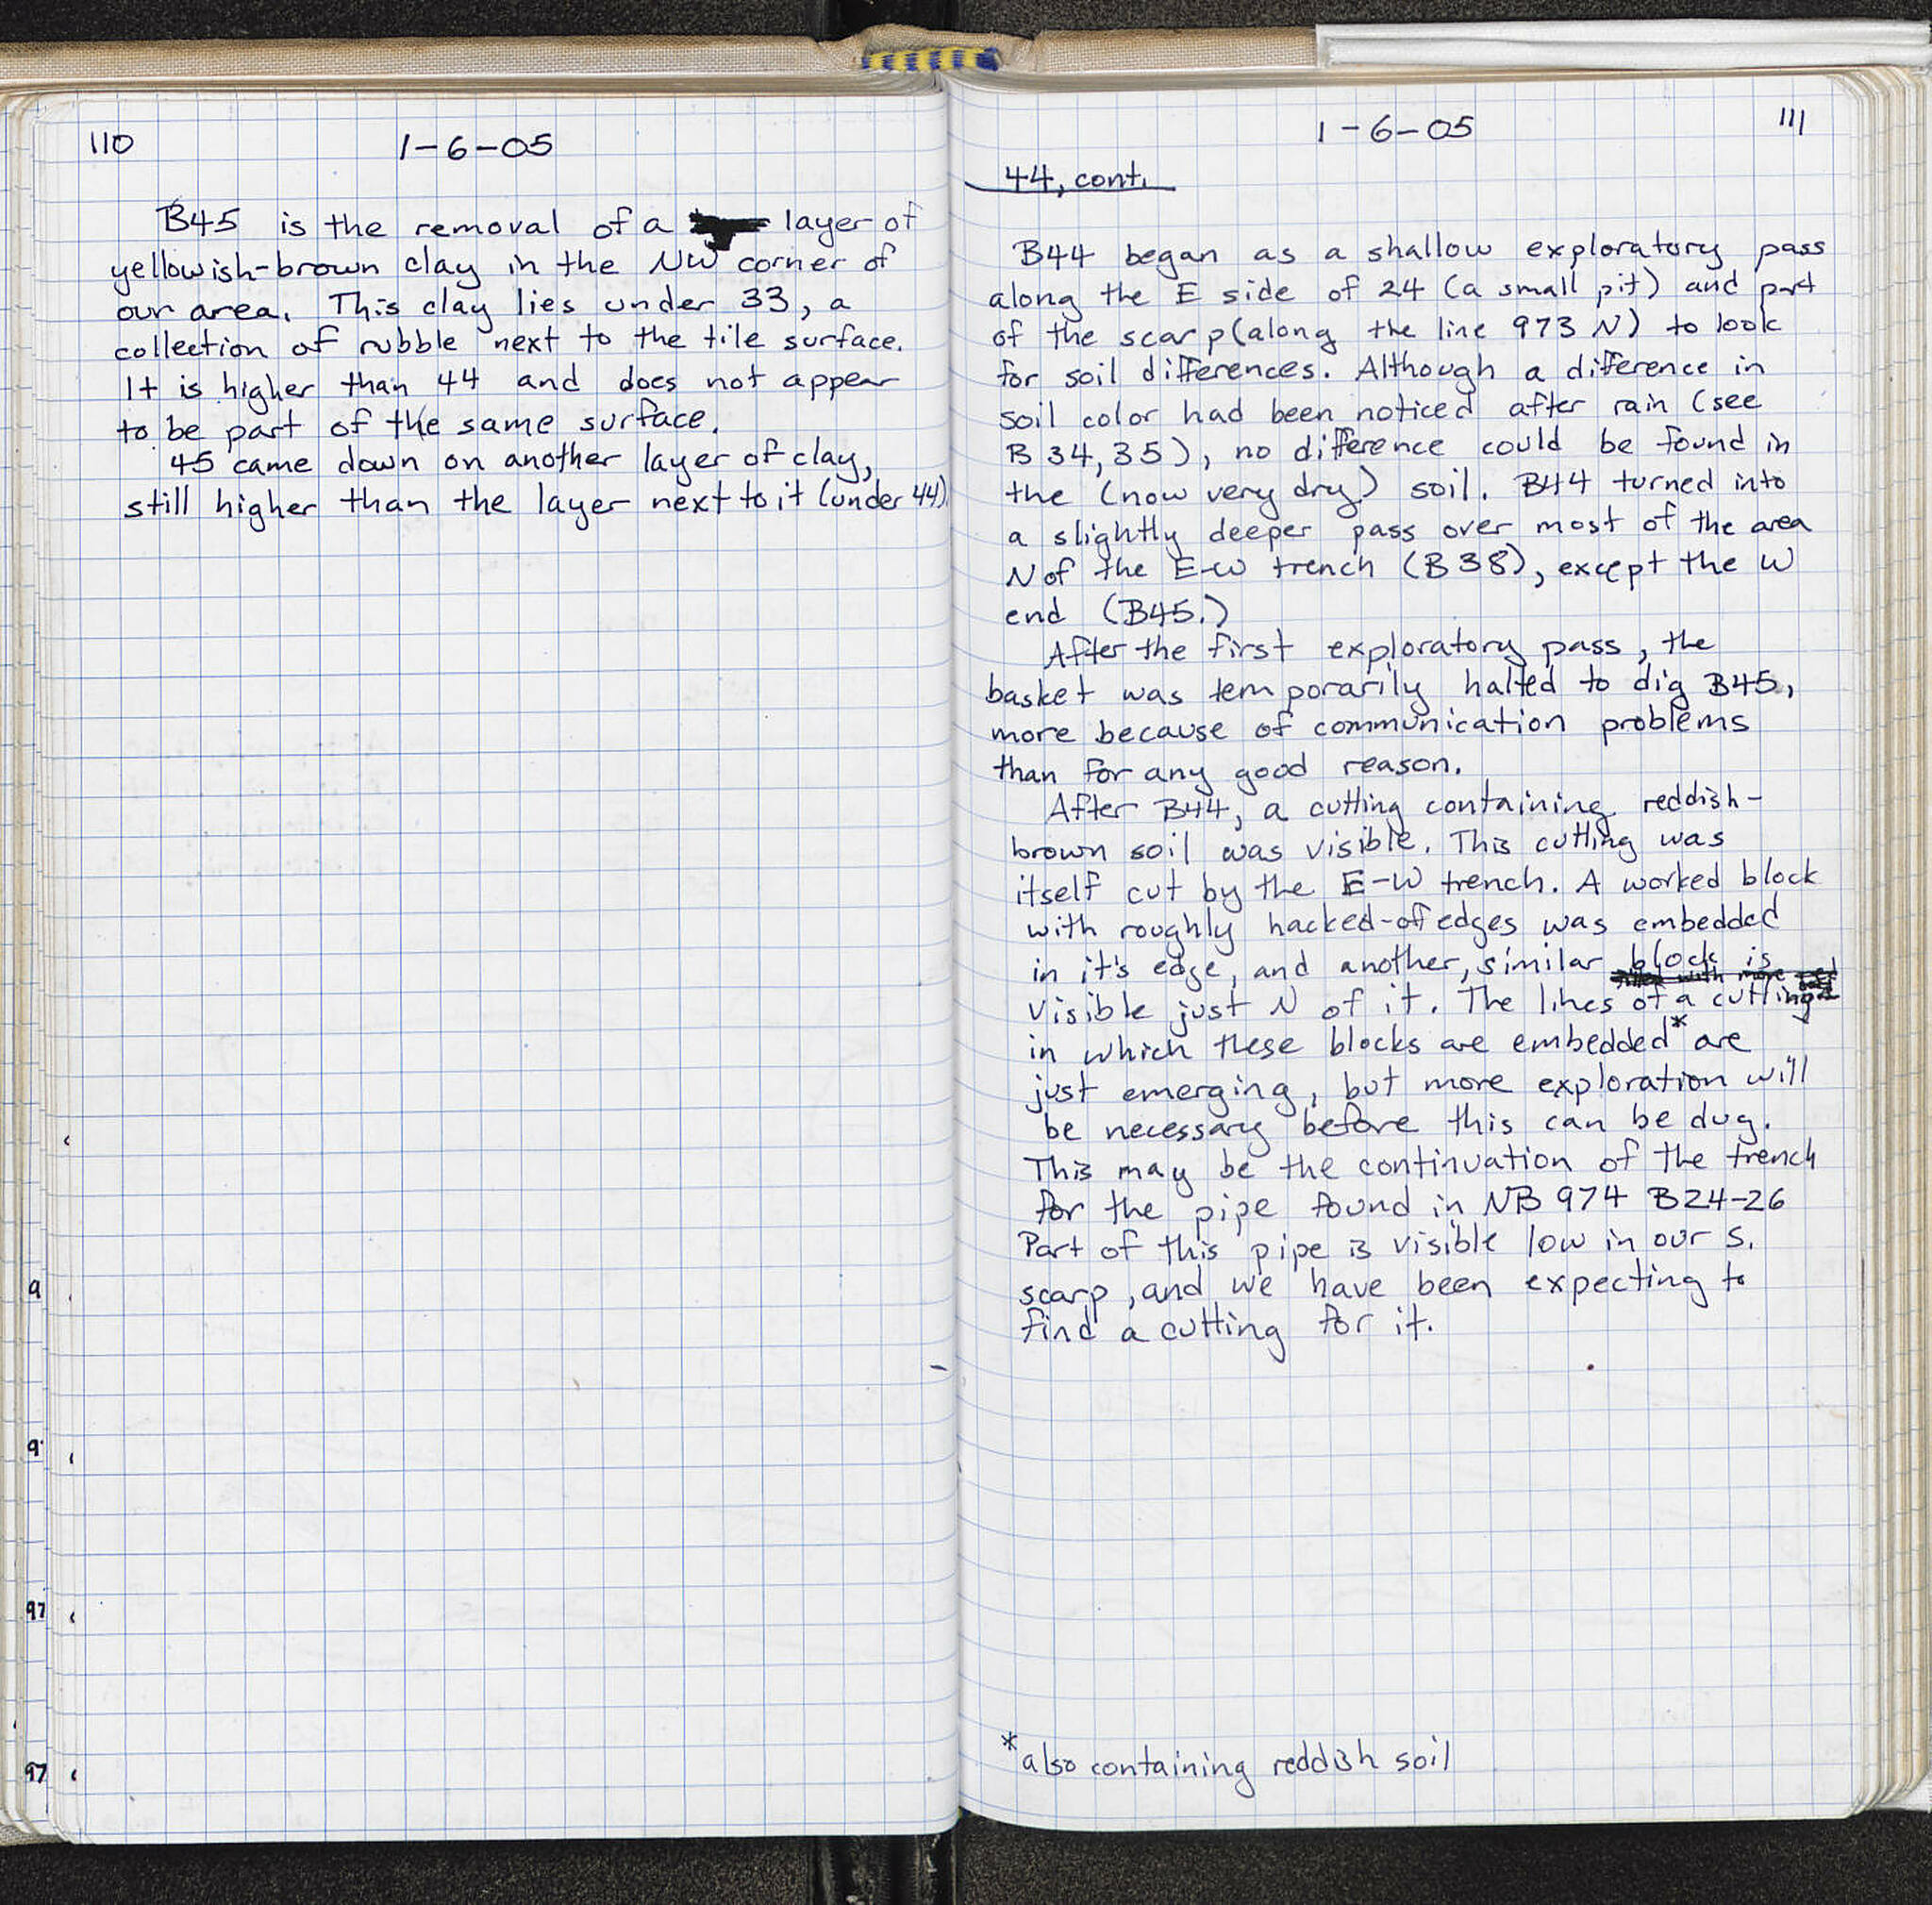 110
1-6-05
B45 is the removal of a layer of
yellowish-brown clay in the NW corner of
our area. This clay lies under 33, a
collection of rubble next to the tile surface.
It is higher than 44 and does not appear
to be part of the same surface.
45 came down on another layer of clay,
still higher than the layer next to it (under 44)
9
9
97
97
1-6-05
111
44, cont.
B44 began as a shallow exploratory pass
along the E side of 24 (a small pit) and part
of the scarp (along the line 973 N) to look
for soil differences. Although a difference in
soil color had been noticed after rain (see
B 34, 35), no difference could be found in
the (now very dry) soil. B44 turned into
a slightly deeper pass over most of the area
N of the E-W trench (B38), except the W
end (B45.)
After the first exploratory pass, the
basket was temporarily halted to dig B45,
more because of communication problems
than for any good reason.
After B44, a cutting containing reddish-
brown soil was visible. This cutting was
itself cut by the E-W trench. A worked block
with roughly hacked-of edges was embedded
in it's edge, and another, similar block is
visible just N of it. The lines of a cutting
in which these blocks are embedded* are
just emerging, but more exploration will
be necessary before this can be dug.
This may be the continuation of the trench
for the pipe found in NB 974 B24-26
Part of this pipe is visible low in our S.
scarp, and we have been expecting to
find a cutting for it.
*also containing reddish soil